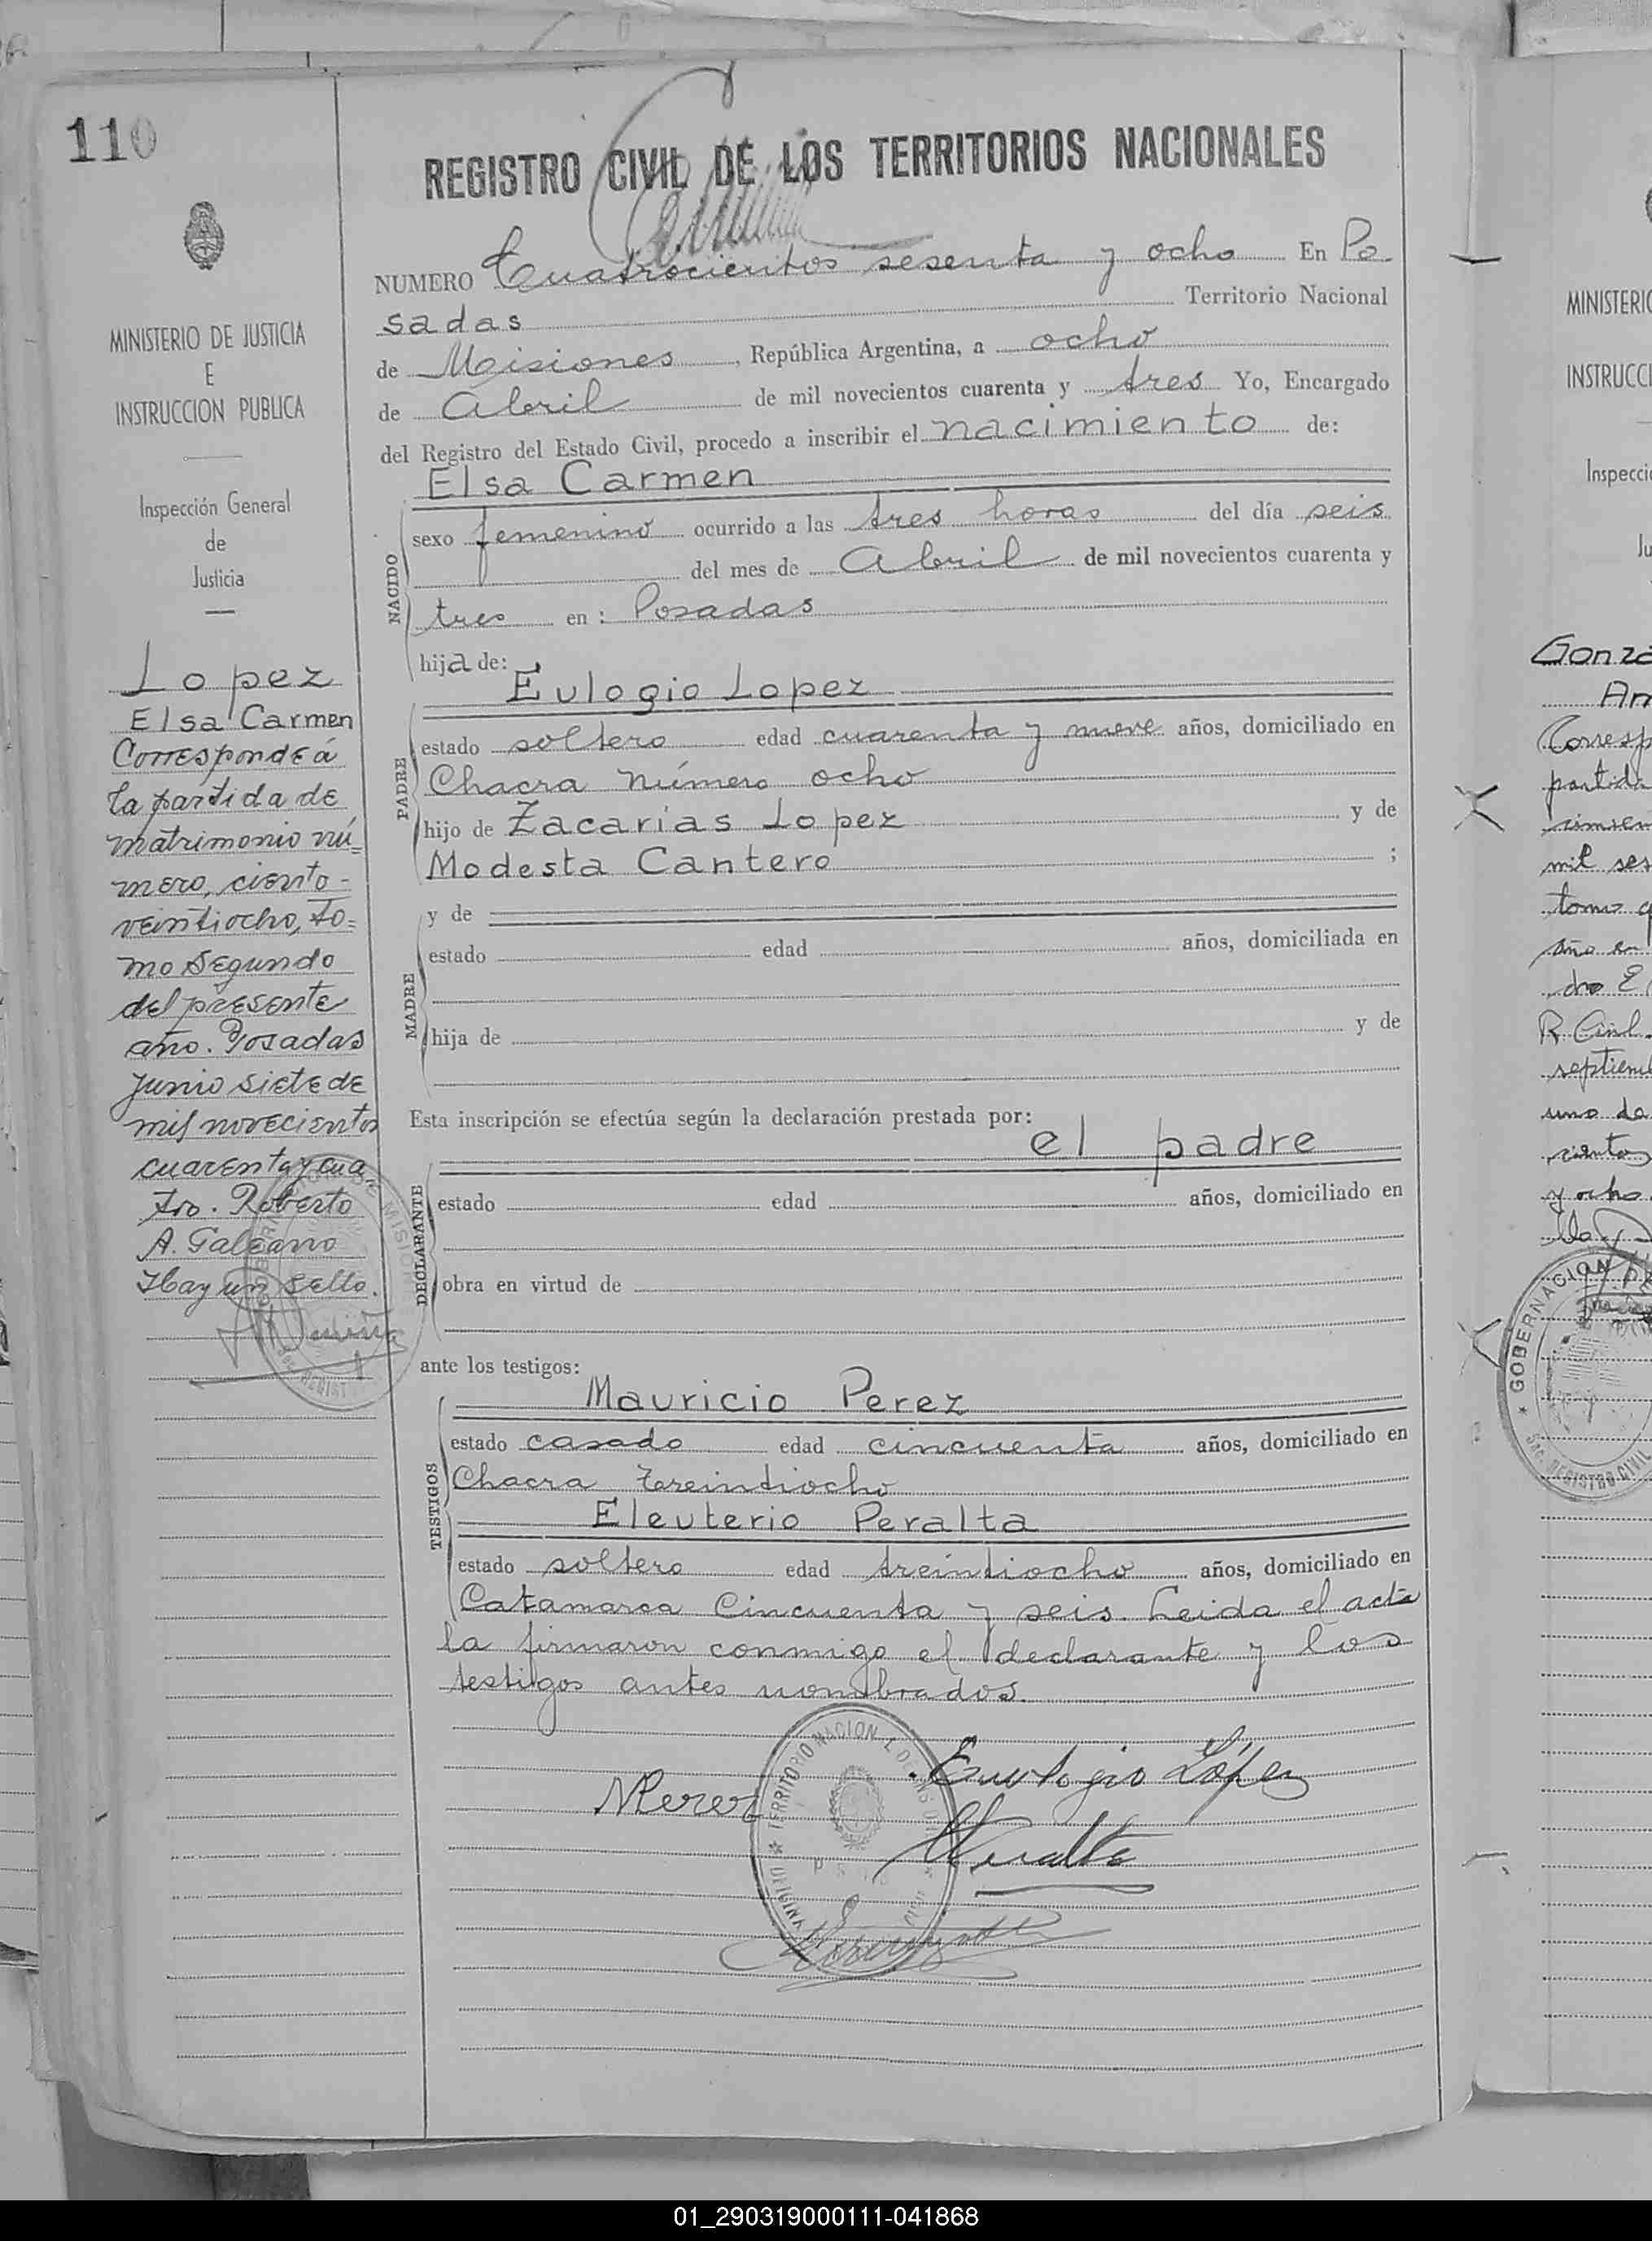 110
MINISTERIO DE JUSTICIA
E
INSTRUCCION PUBLICA
Inspección General
de
Justicia
Lopez
Elsa Carmen
Corresponde á
la partida de
matrimonio nú=
mero, ciento-
veintiocho, to=
mo segundo
del presente
año. Posadas
Junio siete de
mil novecientos
cuarenta y cua
tro. Roberto
A. Galeano
Hay un sello.
REGISTRO CIVIL DE LOS TERRITORIOS NACIONALES
NUMERO Cuatrocientos sesenta y ocho En Po
sadas Territorio Nacional
de Misiones, República Argentina, a ocho
de Abril de mil novecientos cuarenta y tres Yo, Encargado
del Registro del Estado Civil, procedo a inscribir el nacimiento de:
Elsa Carmen
NACIDO
sexo femenino ocurrido a las tres horas del día seis
del mes de Abril de mil novecientos cuarenta y
tres en: Posadas
hija de:
Eulogio Lopez
PADRE
estado soltero edad cuarenta y nueve años, domiciliado en
Chacra número ocho
hijo de Zacarías Lopez y de
Modesta Cantero ;
y de
MADRE
estado edad años, domiciliada en
hija de y de
Esta inscripción se efectúa según la declaración prestada por:
el padre
DECLARANTE
estado edad años, domiciliado en
obra en virtud de
ante los testigos:
Mauricio Perez
TESTIGOS
estado casado edad cincuenta años, domiciliado en
Chacra treintiocho
Eleuterio Peralta
estado soltero edad treintiocho años, domiciliado en
Catamarca Cincuenta y seis. Leida el acta
la firmaron conmigo el declarante y los
testigos antes nombrados.
Eulogio López
MPerez
Peralta
MINISTERIO
INSTRUCCI
Inspecci
Ju
Gonza
Corresp
partida
mil ses
tomo
año en
R. Civil
septiem
uno de
cientos
y ocho
GOBERNACION
REGISTRO CIVIL
01_290319000111-041868